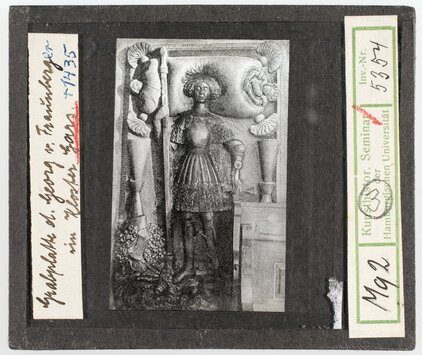 Grabplatte d. Georg v. Fraunberger
im Kloster Gars. +1435
Kunsthistor. Seminar
der
Hamburgischen Universität
Inv.-Nr.
5354
Mg2